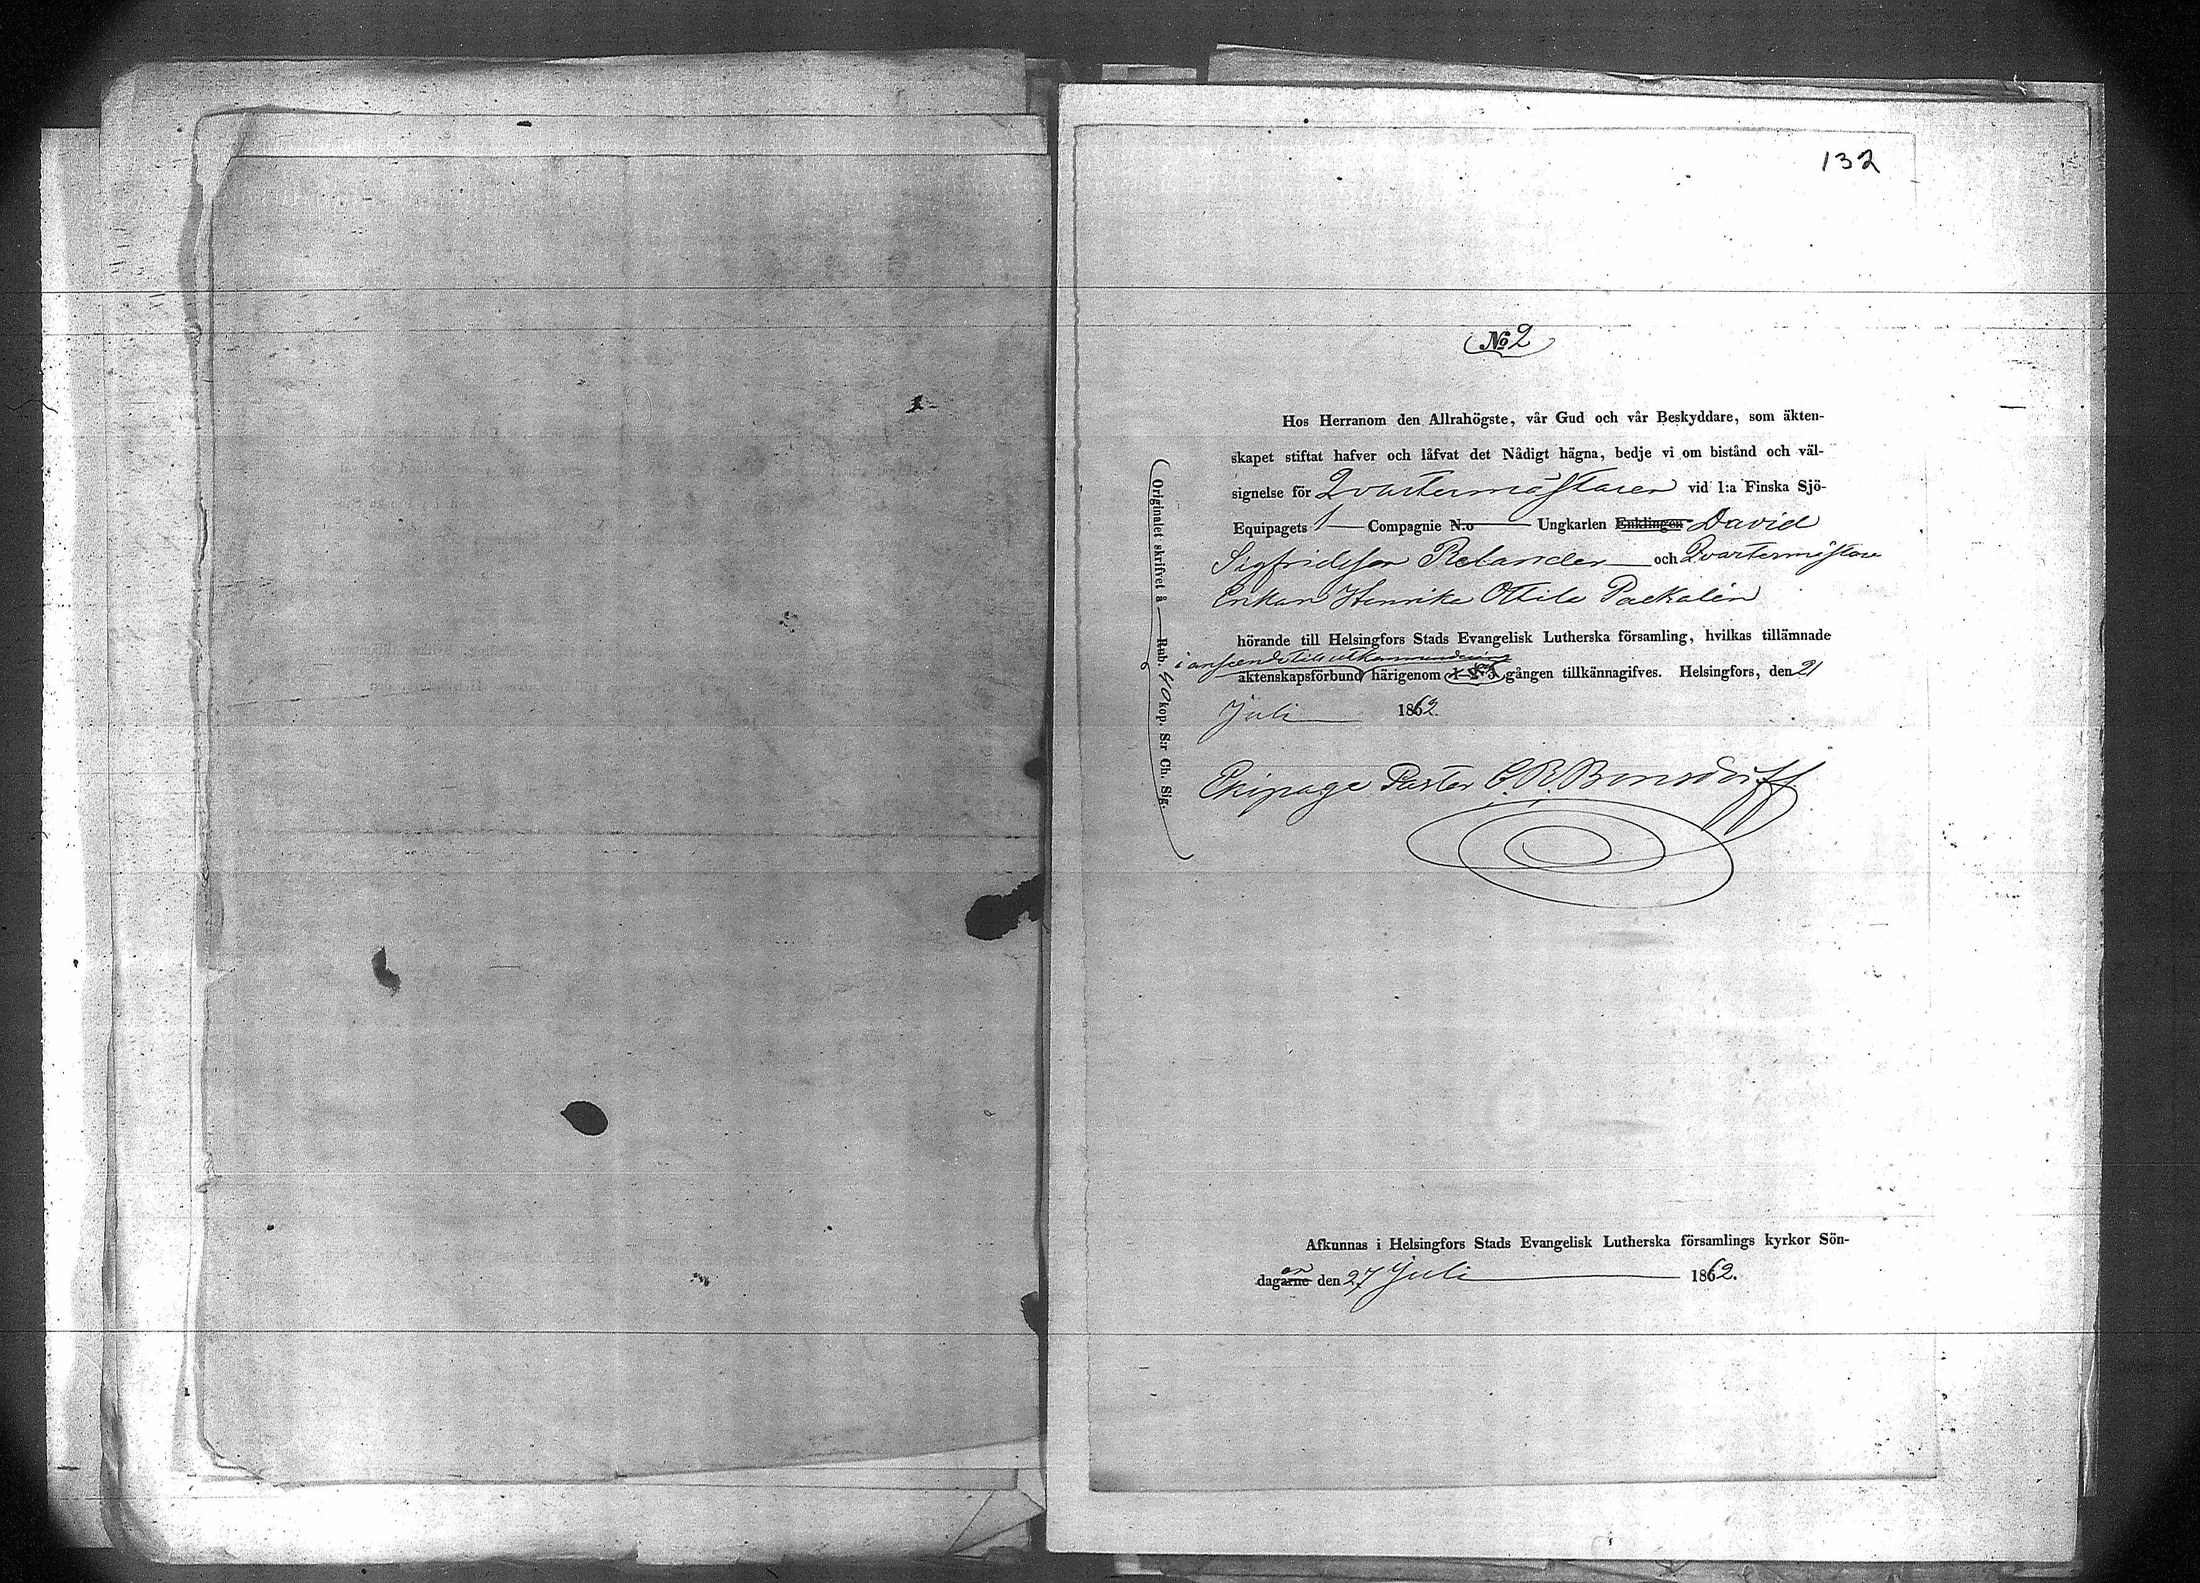 132
No 2
Hos Herranom den Allrahögste, vår Gud och vår Beskyddare, som äkten-
skapet stiftat hafver och låfvat det Nådigt hägna, bedje vi om bistånd och väl-
signelse för Qvartermästaren vid 1:a Finska Sjö-
Equipagets 1 Compagnie N:o Ungkarlen Enklingen David
Sigfridsson Relander och Qvartermästare
Enkan Henrika Ottila Packalén
hörande till Helsingfors Stads Evangelisk Lutherska församling, hvilkas tillämnade
i anseende till utkommendering
äktenskapsförbund härigenom gången tillkännagifves. Helsingfors, den 21
Juli 1862.
Ekipage Pastor C. R. Bonsdorff
Originalet skrifvet å Rub. 40 kop. S:r Ch. Sig.
Afkunnas i Helsingfors Stads Evangelisk Lutherska församlings kyrkor Sön-
en
dagarne den 27 Juli 1862.